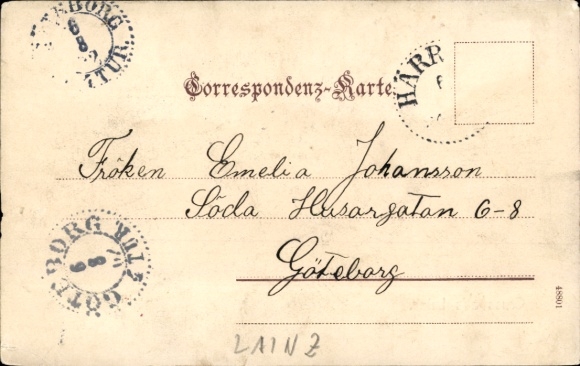 GÖTEBORG
6
8
TUR.
Correspondenz-Karte.
HÄRR
Fröken Emelia Johansson
Söda Husargatan 6-8
Göteborg
GÖTEBORG
6
8
TUR
48801
LAINZ